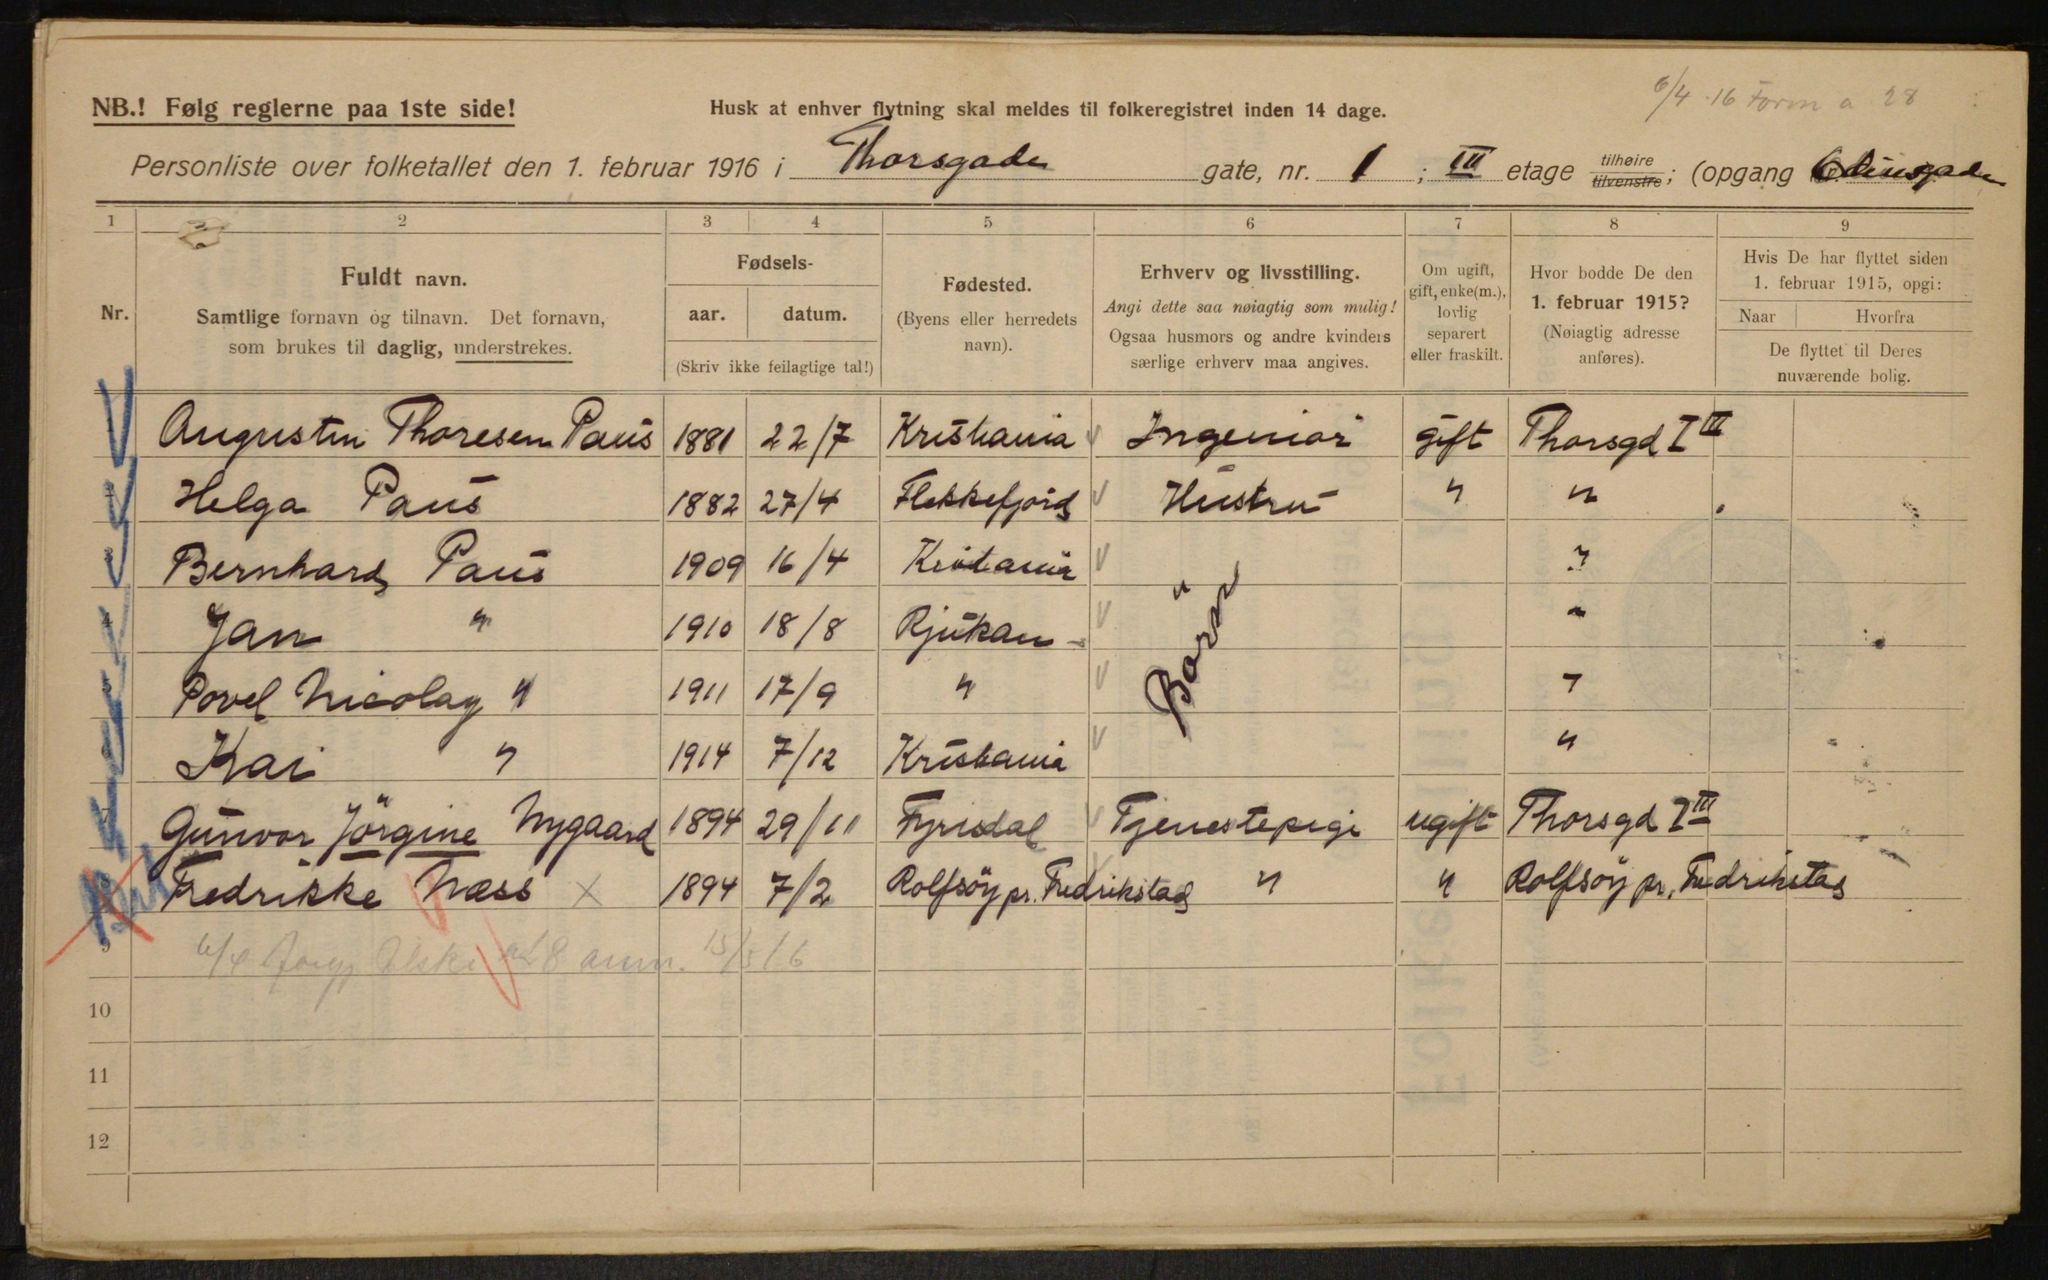 6/4 16 Form a 28
NB.! Følg reglerne paa 1ste side!
Husk at enhver flytning skal meldes til folkeregistret inden 14 dage.
Personliste over folketallet den 1. februar 1916 i Thorsgade gate, nr. 1; III etage tilhøire tilvenstre; (opgang Odinsgade
1 2 3 4 5 6 7 8 9
Nr.
Fuldt navn.
Samtlige fornavn og tilnavn. Det fornavn,
som brukes til daglig, understrekes.
Fødsels-
aar. datum.
(Skriv ikke feilagtige tal!)
Fødested.
(Byens eller herredets
navn).
Erhverv og livsstilling.
Angi dette saa nøiagtig som mulig!
Ogsaa husmors og andre kvinders
særlige erhverv maa angives.
Om ugift,
gift, enke(m.),
lovlig
separert
eller fraskilt.
Hvor bodde De den
1. februar 1915?
(Nøiagtig adresse
anføres).
Hvis De har flyttet siden
1. februar 1915, opgi:
Naar Hvorfra
De flyttet til Deres
nuværende bolig.
Augustin Thoresen Paus 1881 22/7 Kristiania Ingeniör gift Thorsgd I III
Helga Paus 1882 27/4 Flekkefjord Hustru " "
Bernhard Paus 1909 16/4 Kristiania "
Jan " 1910 18/8 Rjukan "
Börn
Povel Nicolay " 1911 17/9 " "
Kai " 1914 7/12 Kristiania "
Gunvor Jörgine Nygaard 1894 29/11 Fyrisdal Tjenestepige ugift Thorsgd I III
Fredrikke Næss × 1894 7/2 Rolfsöy pr. Fredrikstad " " Rolfsöy pr. Fredrikstad
9
10
11
12